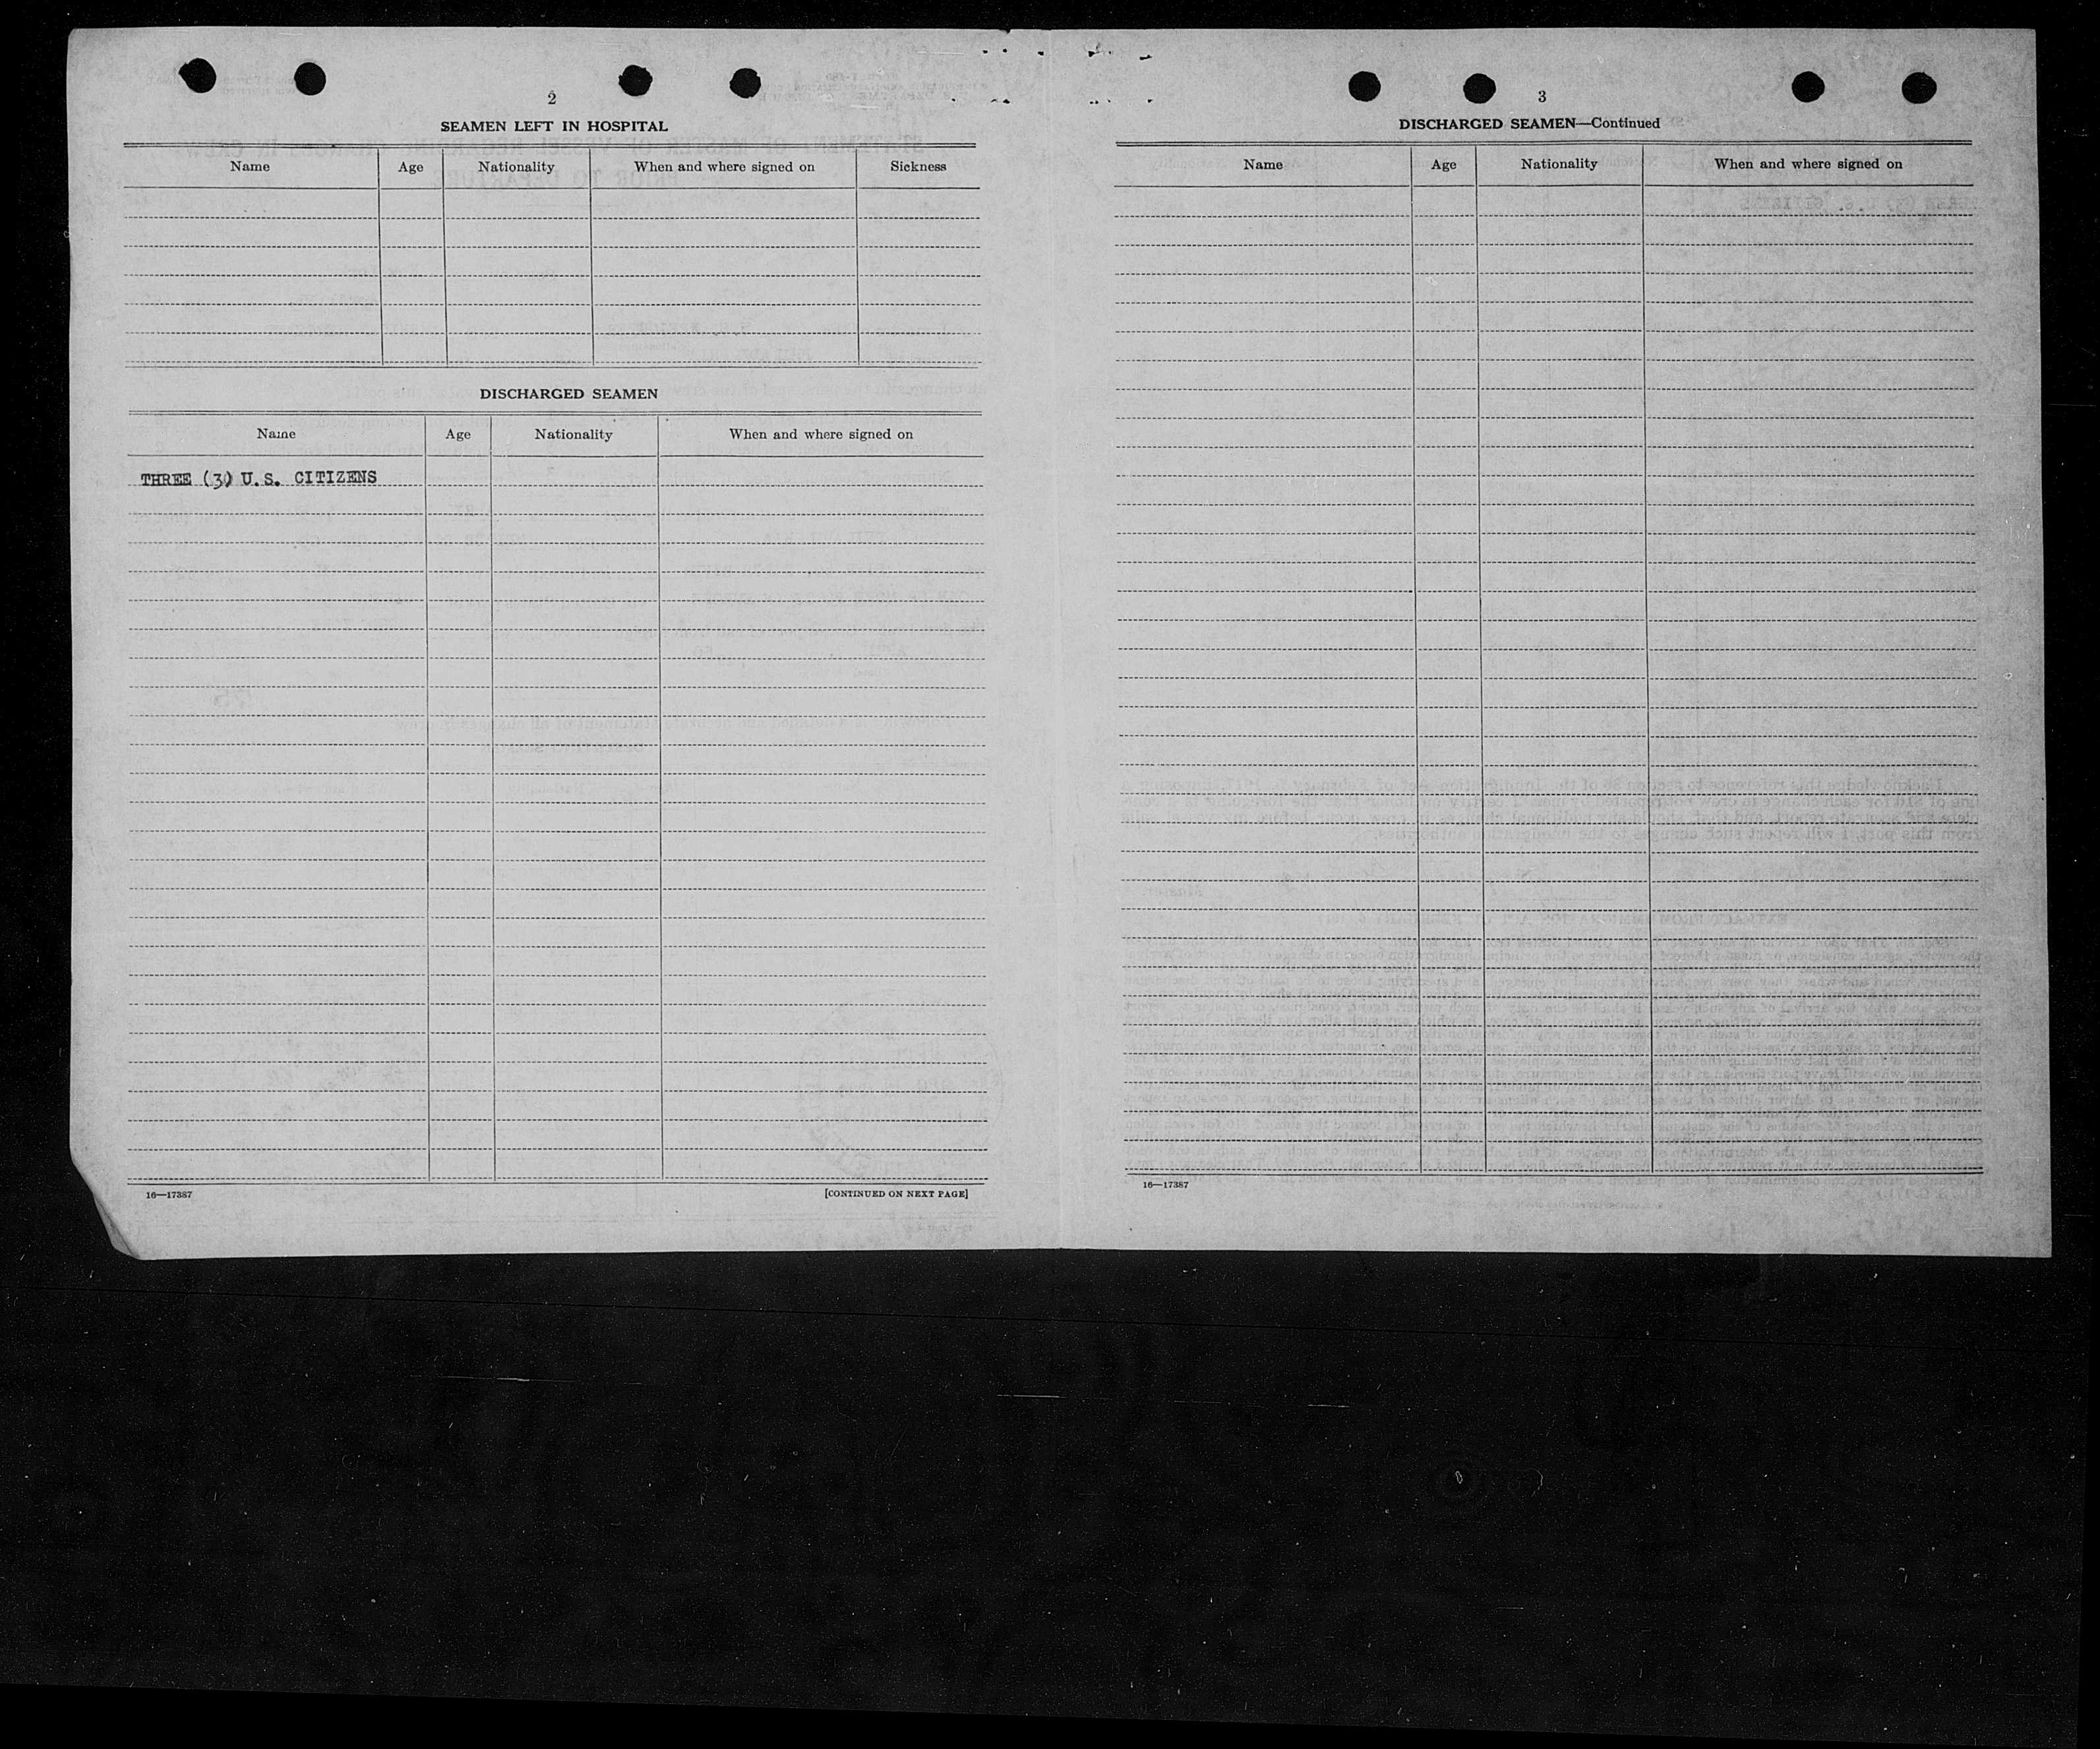 2
SEAMEN LEFT IN HOSPITAL
Name Age Nationality When and where signed on Sickness
DISCHARGED SEAMEN
Name Age Nationality When and where signed on
THREE (3) U.S. CITIZENS
16—17387 [CONTINUED ON NEXT PAGE]
3
DISCHARGED SEAMEN—Continued
Name Age Nationality When and where signed on
16—17387